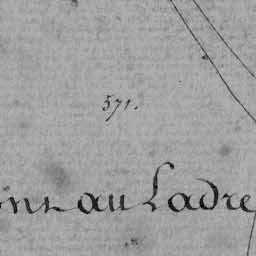 571.
au Ladre